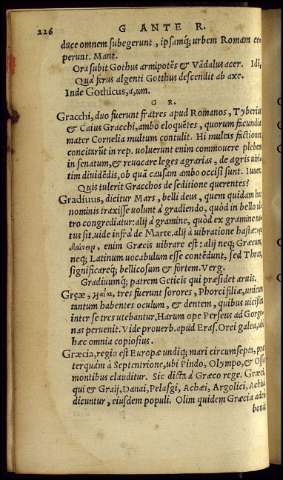 226 G ANTE R.
duce omnem subegerunt, ipsamq; urbem Romam
perunt. Mant.
Ora subit Gothus armipotēs & Vādalus acer.
Quà ferus algenti Gotthus descendit ab axe.
Inde Gothicus, a, um.
G R.
Gracchi, duo fuerunt fratres apud Romanos, Tyberiᵒ
& Caius Gracchi, ambo eloquētes, quorum fœcundiæ
mater Cornelia multum contulit. Hi multis
concitarūt in rep. voluerunt enim commovere plebem
in senatum, & revocare leges agrarias, de agris
tim dividēdis, ob quā causam ambo occisi sunt. Iuuen.
Quis tulerit Gracchos de seditione querentes?
Gradivus, dicitur Mars, belli deus, quem quidam hoc
nominis traxisse volunt à gradiendo, quòd in bello
tro congrediatur: alij à gramine, quòd ex gramine
tus sit. vide infrà de Marte. alij à vibratione hastæ
enim Græcis vibrare est: alij neq; Græcum,
neq; Latinum vocabulum esse contēdunt, sed Thrac.
significareq; bellicosum & fortem. Verg.
Gradivumq; patrem Geticis qui præsidet arvis.
Grææ, tres fuerunt sorores, Phorci filiæ,
tuntum habentes oculum, & dentem, quibus
inter se tres utebantur, Harum ope Perseus ad Gorgo-
nas pervenit. Vide proverb. apud Eras. Orci galea,
hæc omnia copiosius.
Græcia, regio est Europæ undiq; mari circumsepta,
terquàm à Septentrione, ubi Pindo, Olympo, &
montibus clauditur. Sic dicta à Græco rege. Græci
qui & Graij, Danai, Pelasgi, Achæi, Argolici,
dicuntur, eiusdem populi. Olim quidem Græcia